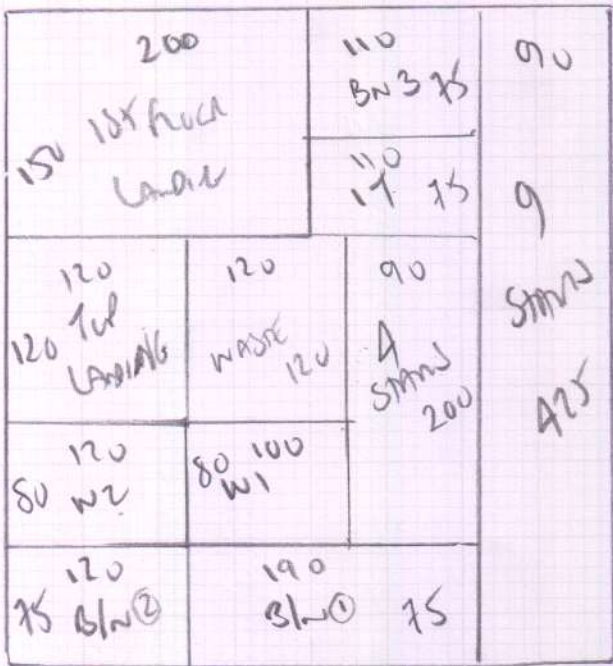 200
150 1ST FLOOR
LANDING
110
BN 3 75
110
17 75
90
9
STAIRS
425
120
120 TOP
LANDING
120
WASTE
120
90
4
STAIRS
200
120
80 W2
80 100
W1
120
75 B/N ②
190
B/N ① 75